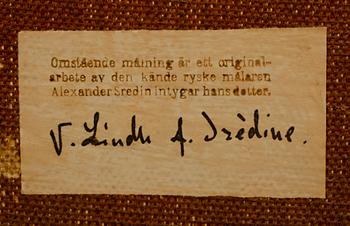 Omstående målning är ett original-
arbete av den kände ryske målaren
Alexander Sredin intygar hans dotter.
V. Lindh f. Srèdine.